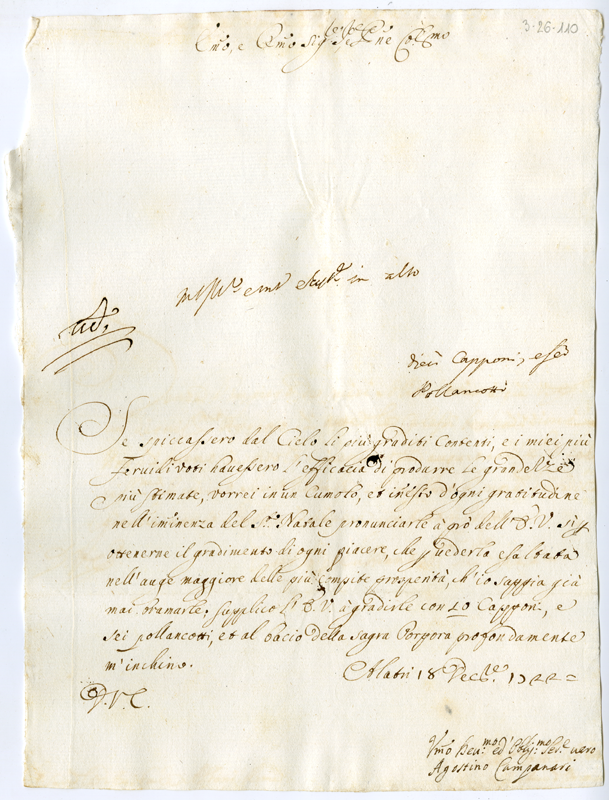 3-26-110
Em̃o, e Rm̃o Sig.re
dieci Capponi, e sei
Pollancotti
Se spiccassero dal Cielo li più graditi Contenti, e i miei più
Servili voti havessero l'efficacia di produrre le grandezze
più stimate, vorrei in un Cumolo, et d'ogni gratitudine
nell'iminenza del S.to Natale pronunciarle à prò dell'E.V.
ottenerne il gradimento di ogni piacere, che vederla esaltata
nell'auge maggiore delle più compite prosperità, ch'io sappia già
mai bramarle. Supplico l'E.V. à gradirle con 10 Capponi, e
sei pollancotti, et al bacio della Sagra Porpora profondamente
m'inchino.
Alatri 18 Dec.re 1722 =
D.V.E.
Vm̃o Deu.mo ed Obl.mo Ser.e vero
Agostino Campanari